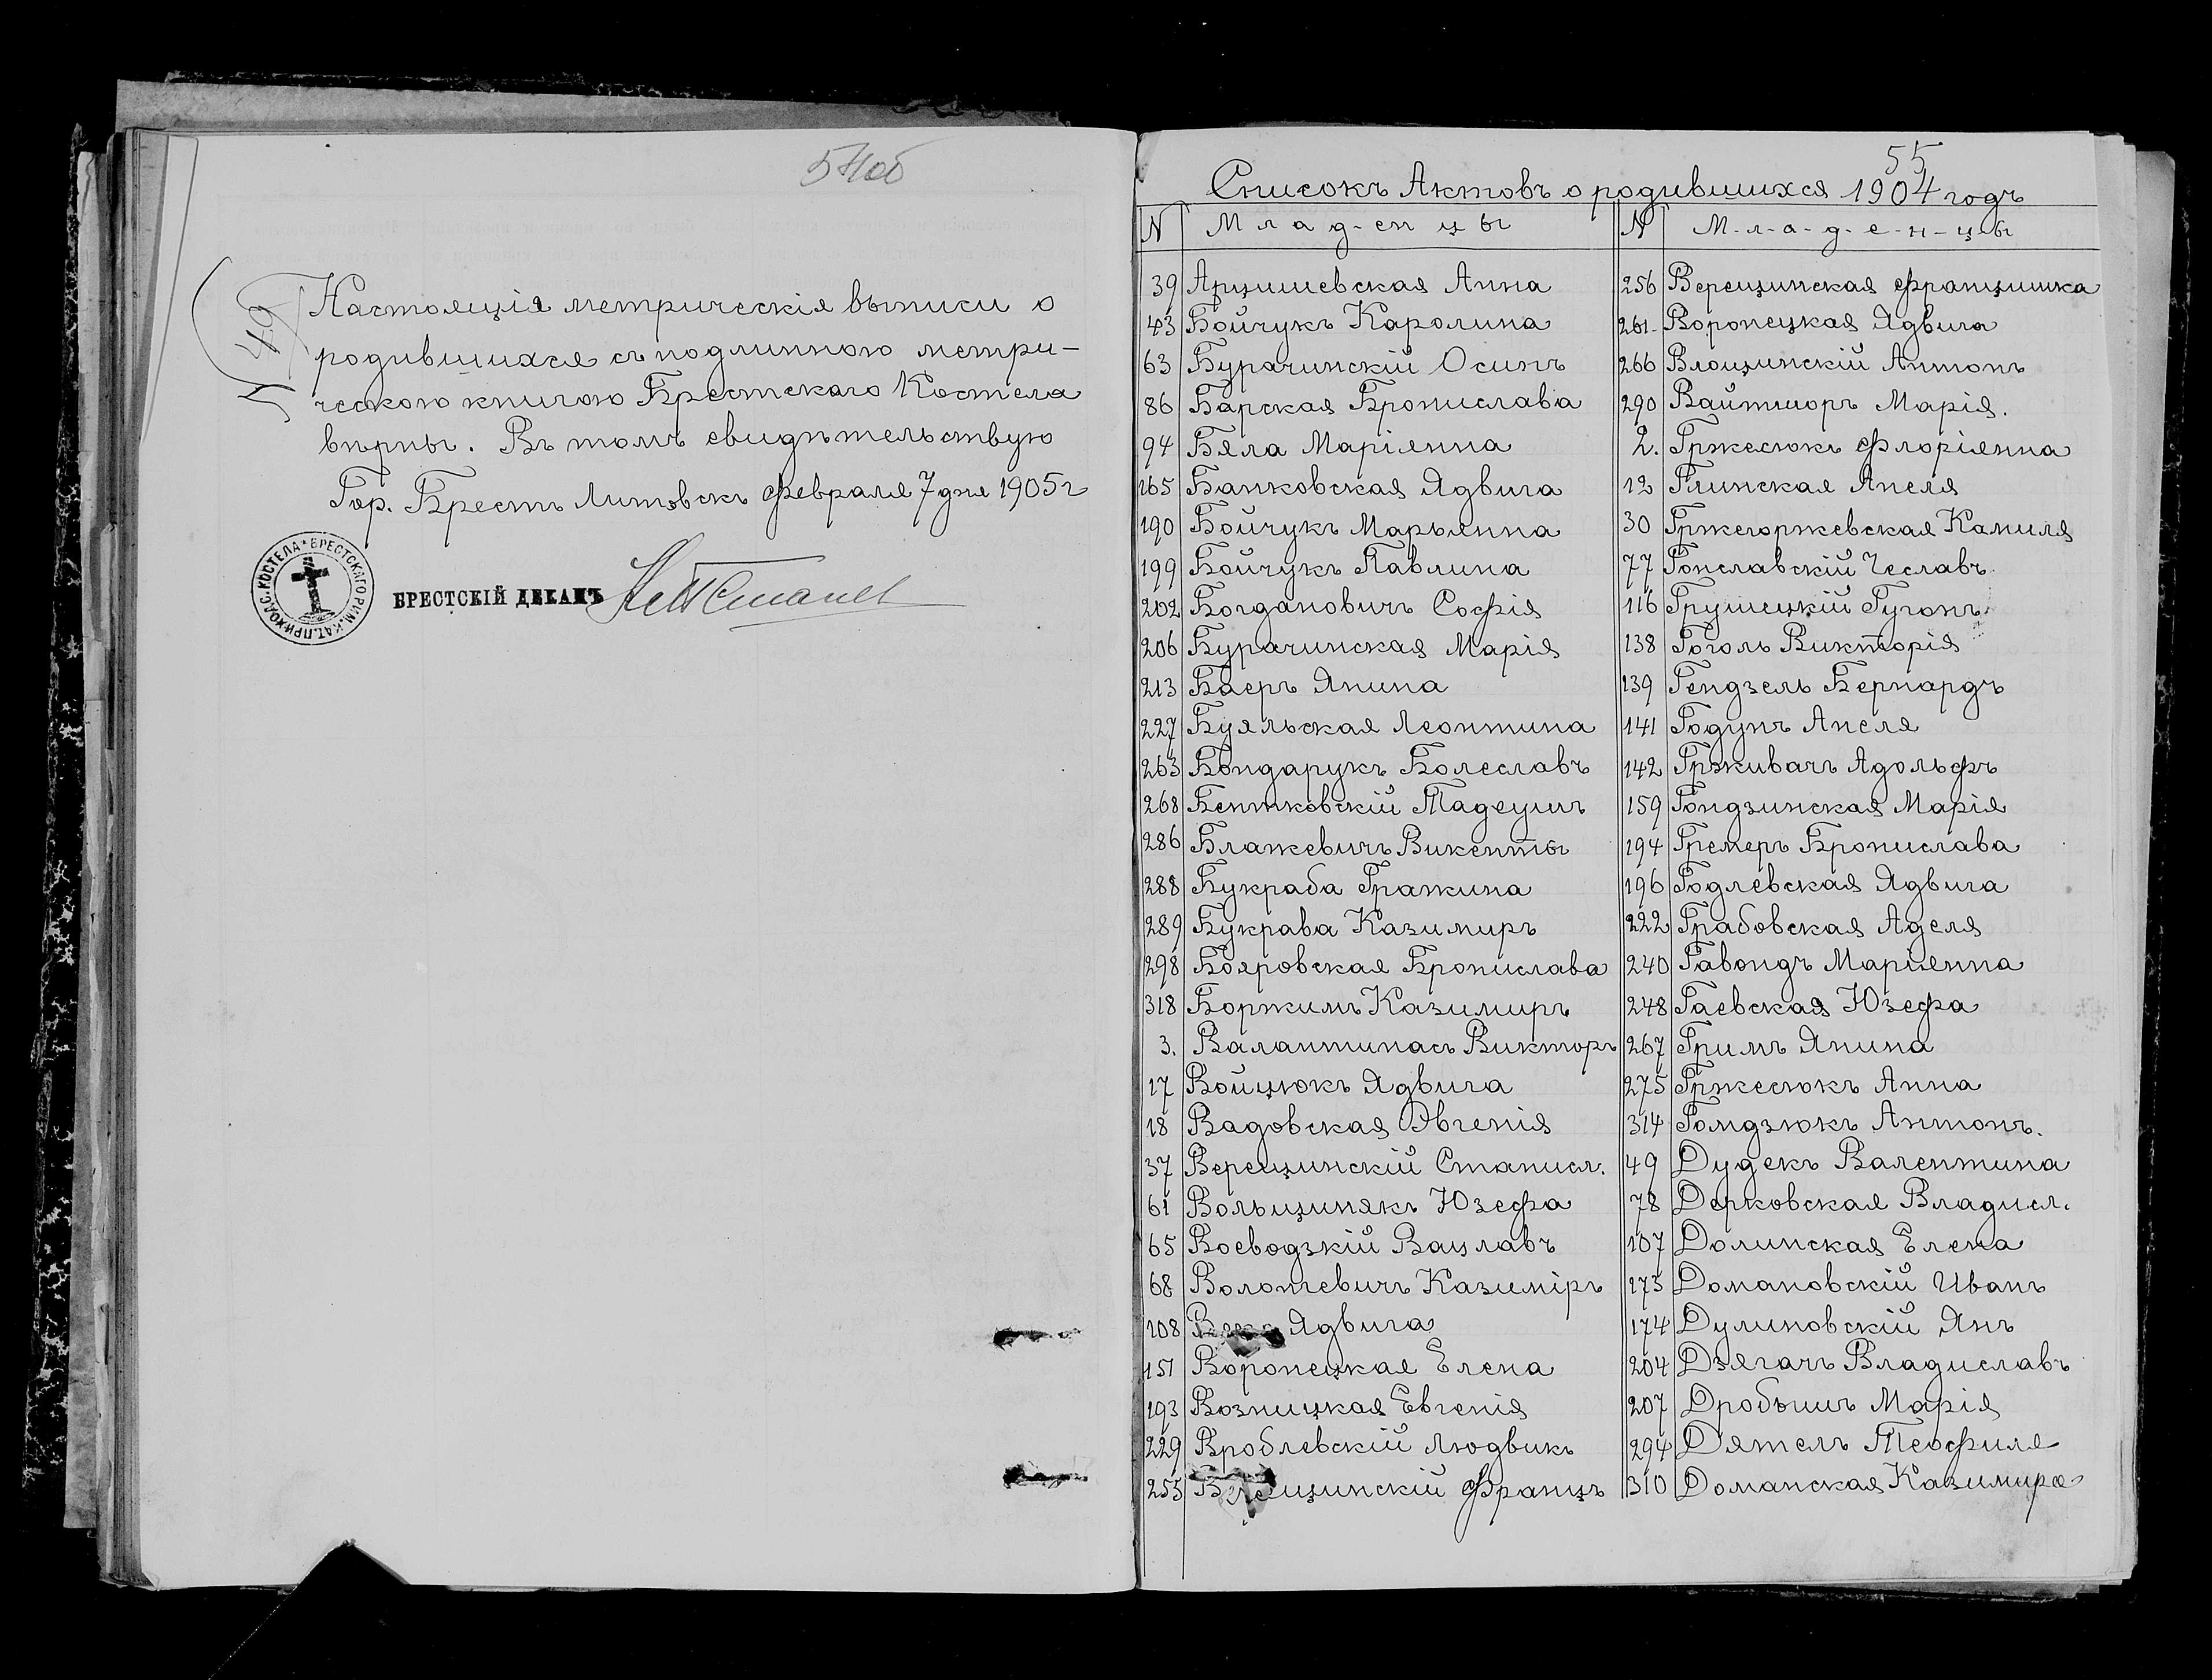 54об
N 49
Настоящія метрическія выписи о
родившихся съ подлинною метри-
ческою книгою Брестскаго Костела
вѣрны. Въ томъ свидѣтельствую
Гор. Брестъ Литовскъ Февраля 7 дня 1905 г
БРЕСТСКАГО РИМ. КАТ. ПРИХОДС. КОСТЕЛА
БРЕСТСКІЙ ДЕКАНЪ
55
Списокъ Актовъ о родившихся 1904 годъ
N Младенцы
39 Арцишевская Анна
43 Бойчукъ Каролина
63 Бурачинскій Осипъ
86 Барская Бронислава
94 Бяла Маріянна
165 Банковская Ядвига
190 Бойчукъ Марьянна
199 Бойчукъ Павлина
202 Богдановичъ Софія
206 Бурачинская Марія
213 Баеръ Янина
227 Буяльская Леонтина
263 Бондарукъ Болеславъ
268 Бентковскій Тадеушъ
286 Блажевичъ Викенты
288 Букраба Гражина
289 Букрава Казимиръ
298 Бояровская Бронислава
318 Боржимъ Казимиръ
3. Валантинасъ Викторъ
17 Войцюкъ Ядвига
18 Вадовская Эвгенія
37 Верещинскій Станисл.
61 Вольщинякъ Юзефа
65 Воеводзкій Вацлавъ
68 Волотевичъ Казиміръ
108 Ядвига
151 Воронецкая Елена
193 Возницкая Евгенія
229 Вроблевскій Людвикъ
255 Францъ
N М-л-а-д-е-н-ц-ы
256 Верещинская Францишка
261. Воронецкая Ядвига
266 Влощинскій Антонъ
290 Вайтшоръ Марія.
2. Гржесюкъ Флоріянна
12 Глинская Анеля
30 Гржегоржевская Камиля
77 Гонславскій Чеславъ
116 Грушецкій Гугонъ
138 Гоголь Викторія
139 Гендзель Бернардъ
141 Годунъ Анеля
142 Грживачъ Адольфъ
159 Гондзинская Марія
194 Гремеръ Бронислава
196 Годлевская Ядвига
222 Грабовская Аделя
240 Гавондъ Маріянна
248 Гаевская Юзефа
267 Гримъ Янина
275 Гржесюкъ Анна
314 Гомдзюкъ Антонъ.
49 Дудекъ Валентина
78 Дерковская Владисл.
107 Долинская Елена
173 Домановскій Иванъ
174 Дулиновскій Янъ
204 Дзягачъ Владиславъ
207 Дробышъ Марія
294 Дятелъ Теофиля
310 Доманская Казимира